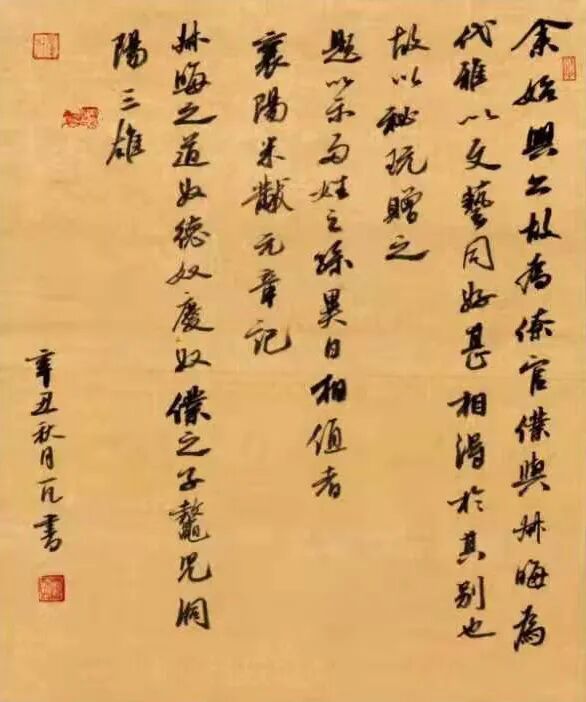 余始興公故為僚官僕與叔晦為
代雅以文藝同好甚相得於其別也
故以秘玩贈之
題以示兩姓之孫異日相值者
襄陽米黻元章記
叔晦之道奴德奴慶奴僕之子鰲兒洞
陽三雄
辛丑秋月書